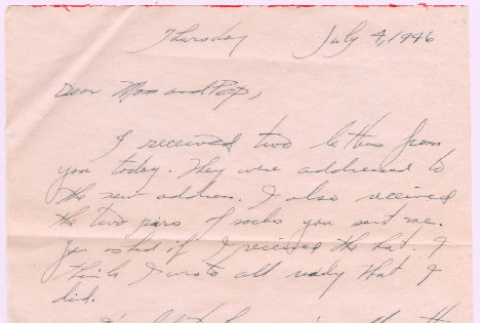 Thursday July 4, 1946
Dear Mom and Pop,
I received two letters from
you today. They were addressed to
the new address. I also received
the two pairs of socks you sent me.
You asked if I received the hat. I
think I wrote all ready that I
did.